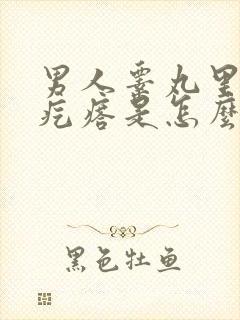 男人睾丸里
疙瘩是怎麼
黑色牡鱼